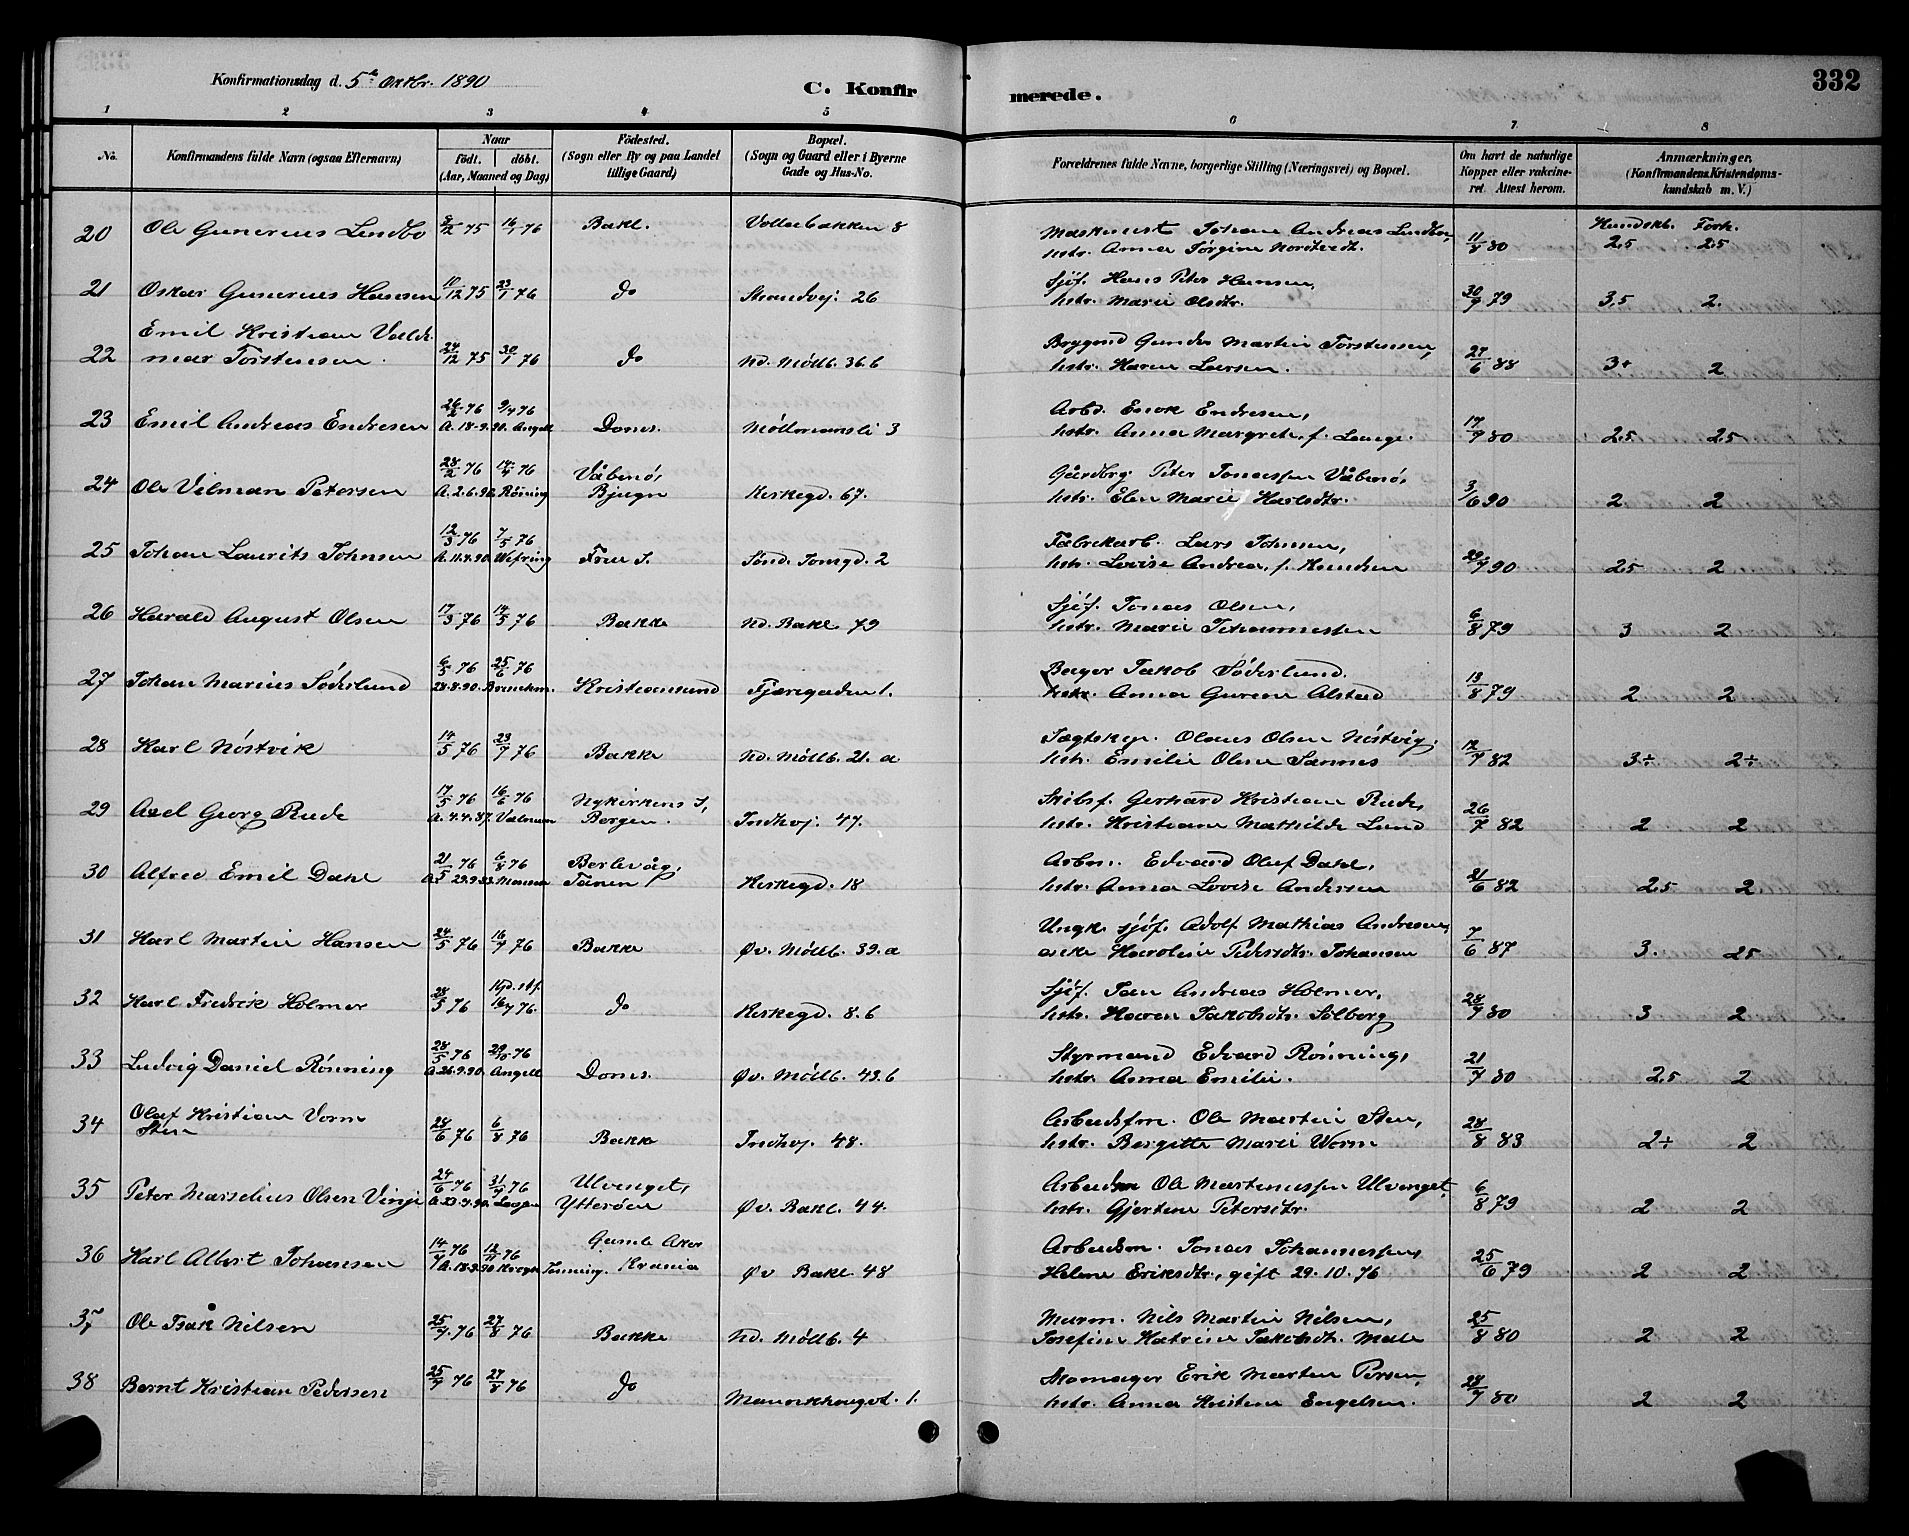 332
Konfirmationsdag d. 5te Oktbr. 1890
C. Konfirmerede.
1 2 3 4 5 6 7 8
No. Konfirmandens fulde Navn (ogsaa Efternavn) Naar født. døbt. (Aar, Maaned og Dag) Fødested. (Sogn eller By og paa Landet tillige Gaard) Bopæl. (Sogn og Gaard eller i Byerne Gade og Hus-No. Forældrenes fulde Navne, borgerlige Stilling (Næringsvei) og Bopæl. Om havt de naturlige Kopper eller vakcineret. Attest herom. Anmærkninger, (Konfirmandens Kristendomskundskab m. V.)
Kundskb. Forh.
20 Ole Gunerius Lindbo 75 76 Bakl. Vollabakken 8 Maskinist Johan Andreas Lindbo, hstr. Anna Jørgine Nordtvedt. 11/8 80 2,5 2,5
21 Oskar Gunerius Hansen 10/12 75 23/1 76 do Strandvej. 26 Sjøf. Hans Peter Hansen, hstr. Marie Olsdtr. 30/9 79 3,5 2.
22 Emil Kristian Valdemar Torstensen. 24/12 75 30/1 76 do Nd. Møllb. 36.b Brygmd Gunder Martin Torstensen, hstr. Karen Larsen. 27/6 88 3+ 2
23 Emil Andreas Endresen 26/2 76 9/4 76 A. 18-9.90. Angell Doms. Møllmansli 3 Arbd. Enok Endresen, hstr. Anna Margrete, f. Lange. 17/9 80 2,5 2,5
24 Ole Vilman Petersen 28/2 76 14/4 76 A. 2.6.90. Røning Våbenø, Bjugn Kirkegd. 67. Gårdbrg Peter Jonassen Våbenø, hstr. Elen Marie Karlsdtr. 3/6 90 2 2
25 Johan Laurits Johnsen 12/3 76 7/5 76 Wefring Frue S. Sønd. Tomgd. 2 Fabrikarb. Lars Johnsen, hstr. Lovise Andrea, f. Knudsen 90 2,5 2
26 Harald August Olsen 17/3 76 14/5 76 Bakke Nd. Bakl. 79 Sjøf. Jonas Olsen, hstr. Marie Johannessen 6/8 79 3 2
27 Johan Marius Søderlund 6/5 76 25/6 76 28.8.90. Kristiansund Fjæregaden 1. Bager Jakob Søderlund. hstr. Anna Gurine Alstad 13/8 79 2 2
28 Karl Nøstvik 14/5 76 23/7 76 Bakke Nd. Møllb. 21. a Olaus Olsen Nøstvig. hstr. Emilie Olsen Sannes 12/7 82 3÷ 2÷
29 Axel Georg Rude 17/5 76 16/6 76 A. 4.4.87. Nykirkens S, Bergen. Indhvj. 47. Skibsf. Gerhard Kristian Rude, hstr. Kristiane Mathilde Lund 26/7 82 2 2
30 Alfred Emil Dahl 21/5 76 6/8 76 Berlevåg, Tanen Kirkegd. 18 Arbm. Edvard Oluf Dahl, hstr. Anna Lovise Andersen 21/6 82 2,5 2
31 Karl Martin Hansen 24/5 76 16/7 76 Bakke Øv. Møllb. 39.a Ungk. sjøf. Adolf Mathias Andresen, Karoline Pedersdtr. Johansen 7/6 87 3. 2,5
32 Karl Fredrik Holmer 28/5 76 16/7 76. do Kirkegd. 8.b Sjøf. Jan Andreas Holmer, hstr. Karen Jakobsdtr. Solberg 28/9 80 3 2
33 Ludvig Daniel Rønning 28/5 76 29/10 76 A. 26.9.90. Angell Doms. Øv. Møllb. 43.b Styrmand Edvard Rønning, hstr. Anna Emilie. 21/7 80 2,5 2
34 Olaf Kristian Vorm Sten 28/6 76 6/8 76 Bakke Indhvj. 48. Arbeidsm. Ole Martin Sten, hstr. Bergitte Marie Worm 28/8 83 2÷ 2
35 Peter Marselius Olsen Vinje 24/6 76 76 Ulvenget, Ytterøen Øv. Bakl. 44. Arbeidsm Ole Martinussen Ulvenget, hstr. Gjertine Petersdtr. 6/8 79 2 2
36 Karl Albert Johansen 14/7 76 12/11 76 Tønning. Gamle Aker Krania Øv. Bakl. 48 Arbeidsm. Jonas Johannessen, Helene Eriksdtr., gift 29.10.76 25/6 79 2 2
37 Ole Isak Nilsen 25/7 76 27/8 76 Bakke Nd. Møllb. 4 Murm. Nils Martin Nilsen, Josefine Katrine Jakobsdt. Male 25/8 80 2 2
38 Bernt Kristian Pedersen 25/7 76 27/8 76 do 1. Skomager Erik Martin Persen, hstr. Anna Kristine Engelsen. 28/7 80 2 2